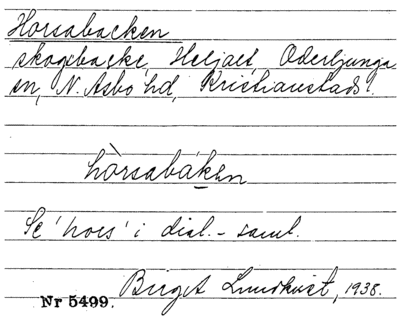 Horsabacken
skogsbacke, Heljalt, Oderljunga
sn, N. Åsbo hd, Kristianstads l.
hòrsabáken
Se 'hors' i dial.-saml.
Birget Lundkvist, 1938.
Nr 5499.